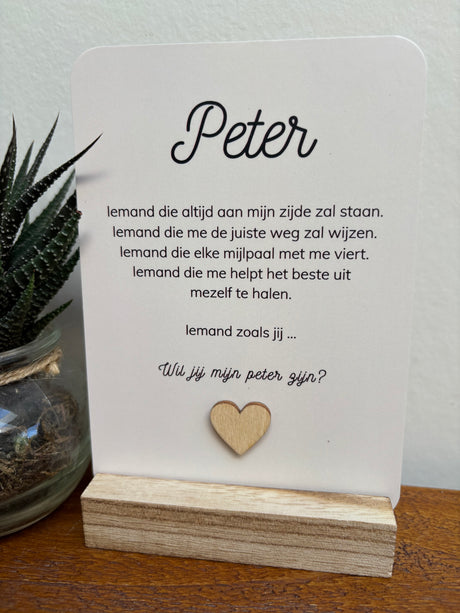 Peter
Iemand die altijd aan mijn zijde zal staan.
Iemand die me de juiste weg zal wijzen.
Iemand die elke mijlpaal met me viert.
Iemand die me helpt het beste uit
mezelf te halen.
Iemand zoals jij ...
Wil jij mijn peter zijn?